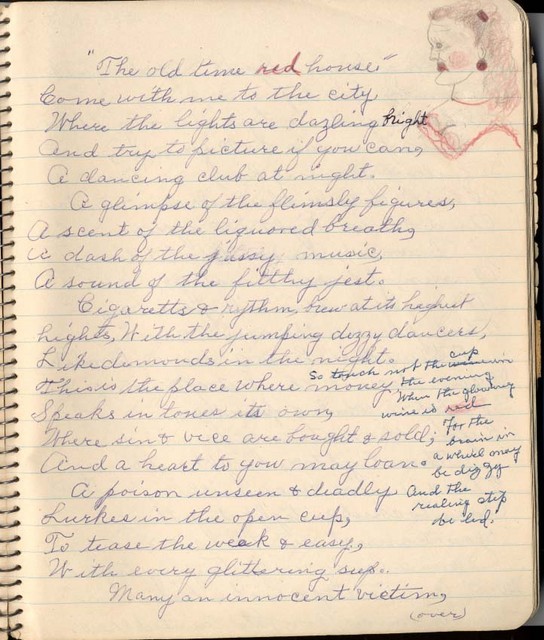 "The old time red house."
Come with me to the city
Where the lights are dazling bright
And try to picture if you can,
A dancing club at night.
A glimpse of the flimsly figures,
A scent of the liquored breath,
a dash of the jassy music,
A sound of the filthy jest.
Cigaretts & rythm, brew at its highest
hights, With the jumping dizzy dancers,
Like demonds in the night.
This is the place where money
Speaks in tones its own,
Where sin & vice are bought & sold;
And a heart to you may loan.
A poison unseen & deadly
Lurkes in the open cup,
To tease the weak & easy,
With every glittering sup.
Many an innocent victim,
(over)
So touch not the cup
the evening
When the glowing
wine is red
For the
brain in
a whirl may
be dizzy
And the
realing step
be led.